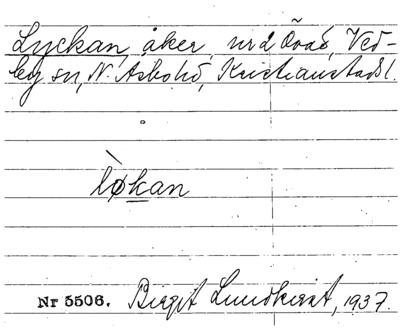 Lyckan, åker, nr 2 Övad, Ved-
by sn, N. Åsbohd, Kristianstads l.
lø̀kan
Nr 5506. Birgit Lundkvist, 1937.